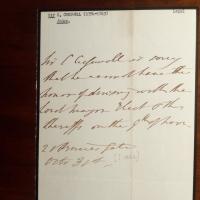 SIR C. CRESSWELL (1794-1863)
Judge.
Sir C Cresswell is sorry
that he cannot have the
honor of dining with the
Lord Mayor Elect & the
Sheriffs on the 9th of Nov
Gate
Oct 31st